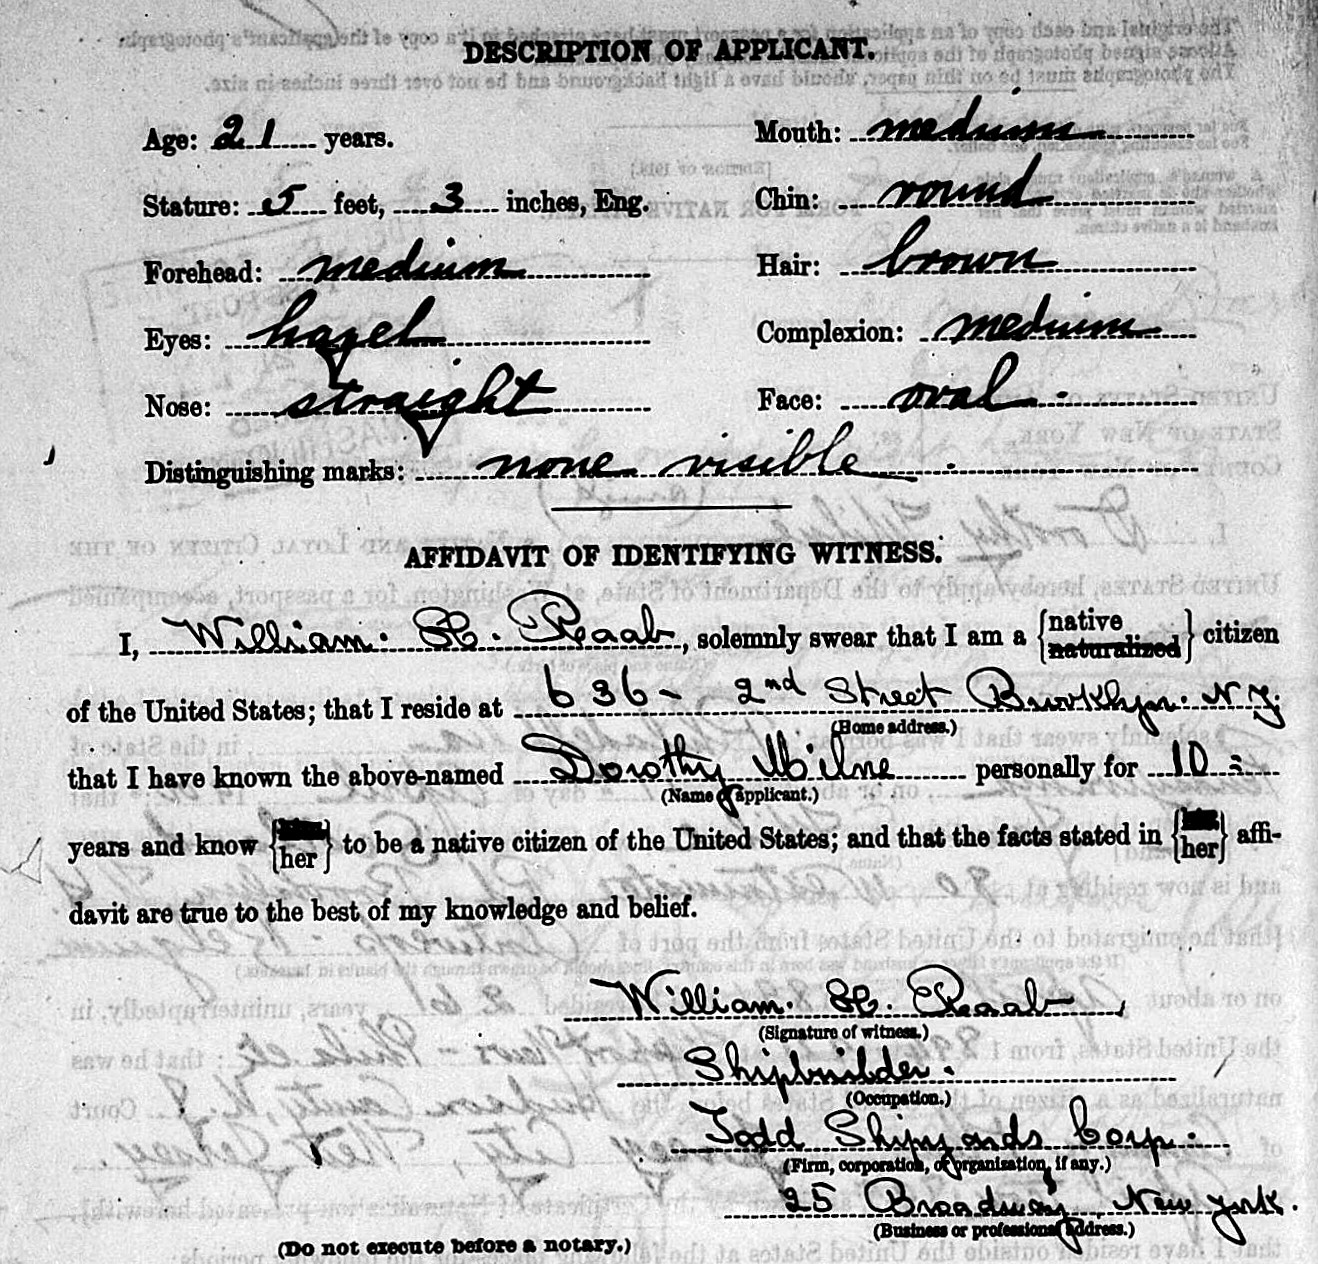 DESCRIPTION OF APPLICANT.
Age: 21 years.
Mouth: medium
Stature: 5 feet, 3 inches, Eng.
Chin: round
Forehead: medium
Hair: brown
Eyes: hazel
Complexion: medium
Nose: straight
Face: oval
Distinguishing marks: none visible
AFFIDAVIT OF IDENTIFYING WITNESS.
I, William. H. Raab, solemnly swear that I am a {native naturalized} citizen
of the United States; that I reside at 636 - 2nd Street Brooklyn. N.Y.
(Home address.)
that I have known the above-named Dorothy Milne personally for 10
(Name of applicant.)
years and know {him her} to be a native citizen of the United States; and that the facts stated in {his her} affi-
davit are true to the best of my knowledge and belief.
William. H. Raab
(Signature of witness.)
Shipbuilder.
(Occupation.)
Todd Shipyards Corp.
(Firm, corporation, or organization, if any.)
25 Broadway, New York.
(Business or professional address.)
(Do not execute before a notary.)